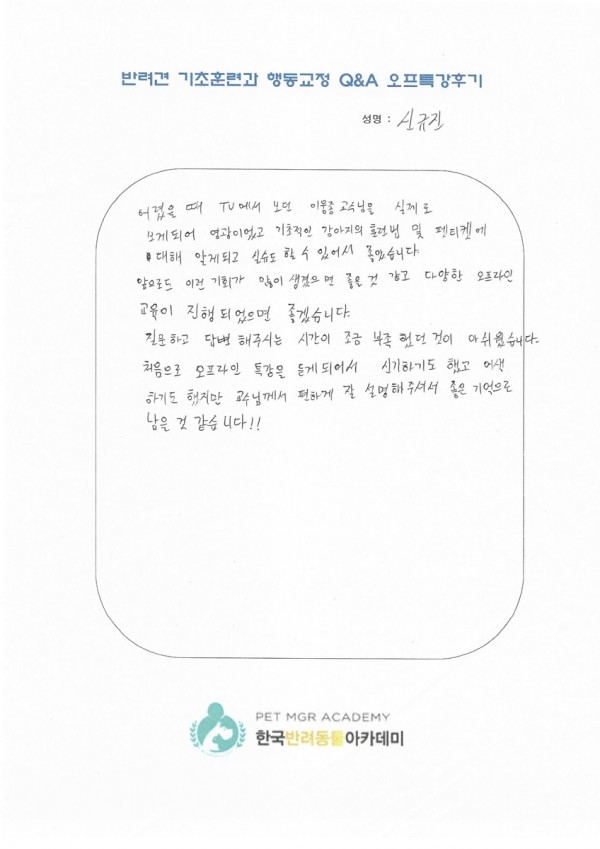 반려견 기초훈련과 행동교정 Q&A 오프특강후기
성명 : 신규진
어렸을 때 TV에서 보던 이웅종 교수님을 실제로
보게되어 영광이었고 기초적인 강아지의 훈련법 및 펫티켓에
대해 알게되고 실습도 할 수 있어서 좋았습니다.
앞으로도 이런 기회가 많이 생겼으면 좋을 것 같고 다양한 오프라인
교육이 진행되었으면 좋겠습니다.
질문하고 답변 해주시는 시간이 조금 부족했던 것이 아쉬웠습니다.
처음으로 오프라인 특강을 듣게되어서 신기하기도 했고 어색
하기도 했지만 교수님께서 편하게 잘 설명해주셔서 좋은 기억으로
남을 것 같습니다!!
PET MGR ACADEMY
한국반려동물아카데미